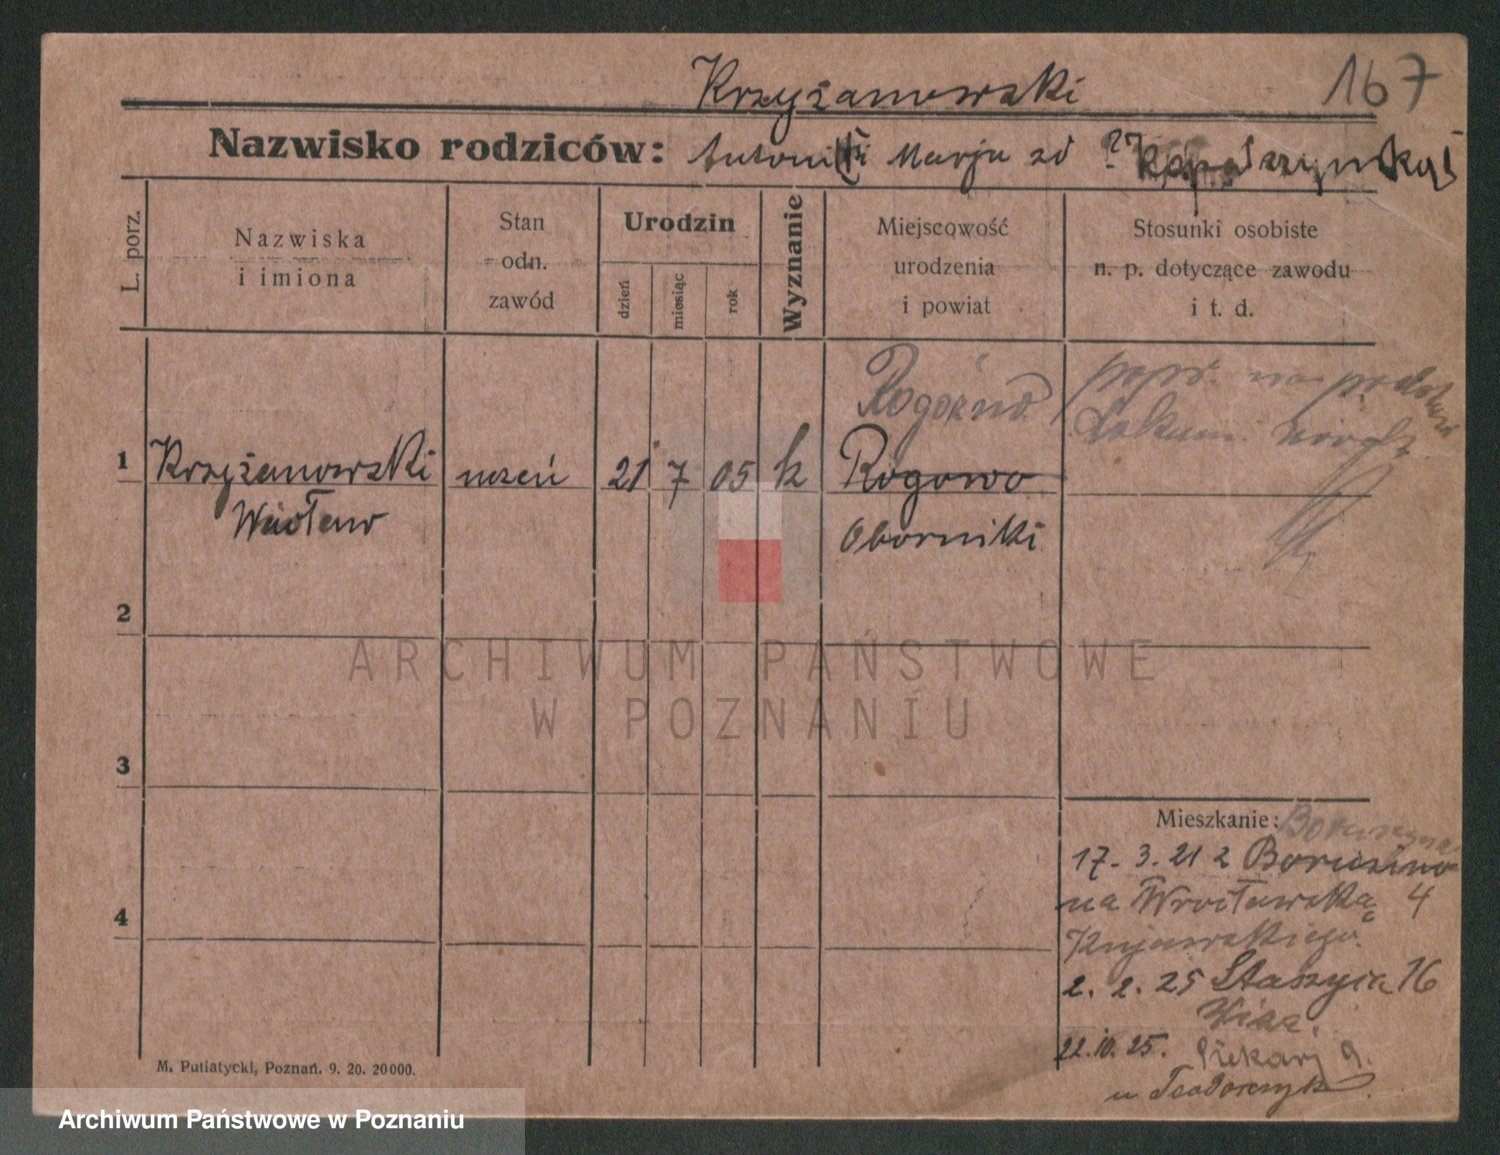 Krzyżanowski
167
Nazwisko rodziców: Antoni i Marja zd
L. porz.
Nazwiska i imiona
Stan odn. zawód
Urodzin
dzień
miesiąc
rok
Wyznanie
Miejscowość urodzenia i powiat
Stosunki osobiste n. p. dotyczące zawodu i t. d.
Rogoźno
popr. na podstaw
1 Krzyżanowski uczeń 21 7 05 k Rogowo
Wacław
Oborniki
2
ARCHIWUM PAŃSTWOWE
W POZNANIU
3
Mieszkanie:
17. 3. 21 z Boruszyno
na Wrocławską 4
Kujawskiego
4
2. 2. 25 Staszyca 16
22. 10. 25. Piekary 9.
u Teodorczyk
M. Putiatycki, Poznań. 9. 20. 20000.
Archiwum Państwowe w Poznaniu